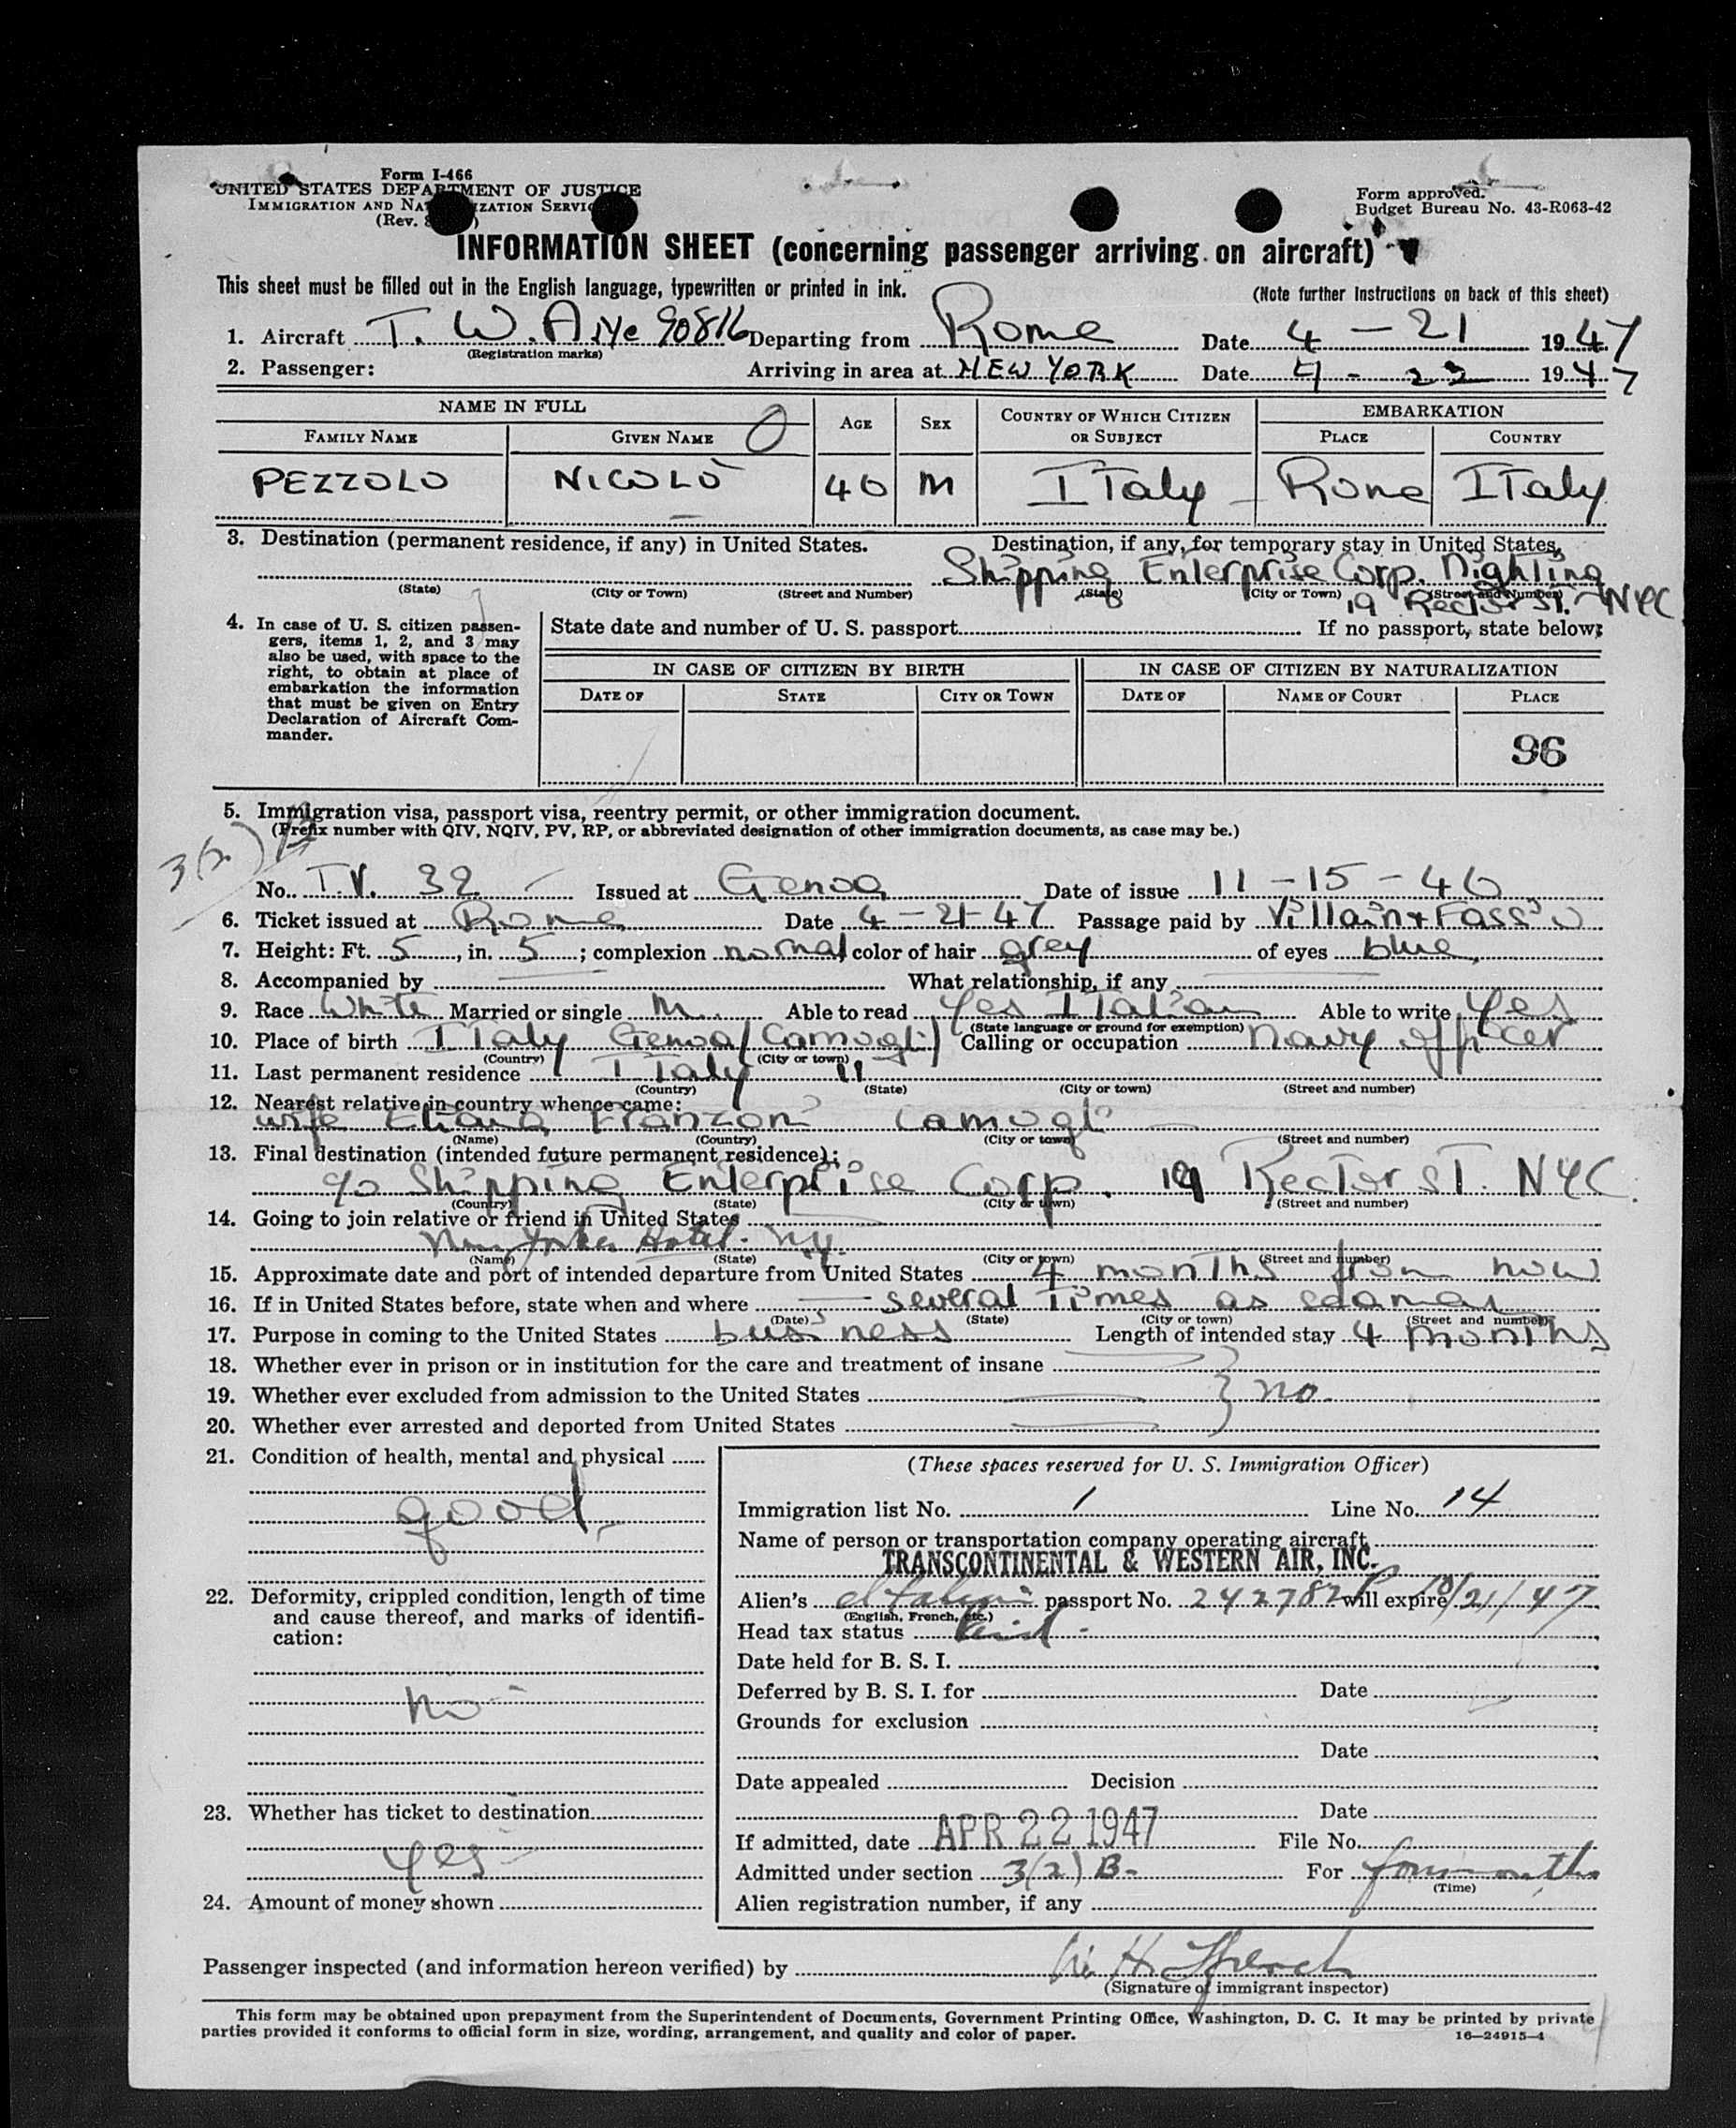 Form I-466
UNITED STATES DEPARTMENT OF JUSTICE
IMMIGRATION AND NATURALIZATION SERVICE
(Rev.
Form approved.
Budget Bureau No. 43-R063-42
INFORMATION SHEET (concerning passenger arriving on aircraft)
This sheet must be filled out in the English language, typewritten or printed in ink.
(Note further instructions on back of this sheet)
1. Aircraft T. W. A. 90816 Departing from Rome Date 4 - 21 1947
(Registration marks)
2. Passenger: Arriving in area at NEW YORK Date 4 - 22 1947
NAME IN FULL AGE SEX COUNTRY OF WHICH CITIZEN OR SUBJECT EMBARKATION
FAMILY NAME GIVEN NAME PLACE COUNTRY
PEZZOLO NICOLÒ 40 M ITaly Rome ITaly
3. Destination (permanent residence, if any) in United States. Destination, if any, for temporary stay in United States.
Shipping Enterprise Corp.
(State) (City or Town) (Street and Number) (State) (City or Town) (Street and Number)
19 Rector ST. NYC
4. In case of U. S. citizen passengers, items 1, 2, and 3 may also be used, with space to the right, to obtain at place of embarkation the information that must be given on Entry Declaration of Aircraft Commander.
State date and number of U. S. passport If no passport, state below:
IN CASE OF CITIZEN BY BIRTH IN CASE OF CITIZEN BY NATURALIZATION
DATE OF STATE CITY OR TOWN DATE OF NAME OF COURT PLACE
96
5. Immigration visa, passport visa, reentry permit, or other immigration document.
(Prefix number with QIV, NQIV, PV, RP, or abbreviated designation of other immigration documents, as case may be.)
3(2) B
No. T.V. 32 Issued at Genoa Date of issue 11 - 15 - 46
6. Ticket issued at Rome Date 4-21-47 Passage paid by Villain & Fassio
7. Height: Ft. 5, in. 5; complexion normal color of hair grey of eyes blue
8. Accompanied by What relationship, if any
9. Race White Married or single M. Able to read Yes ITalian Able to write Yes
(State language or ground for exemption)
10. Place of birth ITaly Genoa (Camogli) Calling or occupation Navy officer
(Country) (City or town)
11. Last permanent residence ITaly "
(Country) (State) (City or town) (Street and number)
12. Nearest relative in country whence came:
wife Franzoni Camogli
(Name) (Country) (City or town) (Street and number)
13. Final destination (intended future permanent residence):
c/o Shipping Enterprise Corp. 19 Rector ST. NYC.
(Country) (State) (City or town) (Street and number)
14. Going to join relative or friend in United States
New Yorker Hotel. N.Y.
(Name) (State) (City or town) (Street and number)
15. Approximate date and port of intended departure from United States 4 months from now
16. If in United States before, state when and where several Times as seaman
(Date) (State) (City or town) (Street and number)
17. Purpose in coming to the United States business Length of intended stay 4 months
18. Whether ever in prison or in institution for the care and treatment of insane
19. Whether ever excluded from admission to the United States no.
20. Whether ever arrested and deported from United States
21. Condition of health, mental and physical
good
22. Deformity, crippled condition, length of time and cause thereof, and marks of identification:
no
23. Whether has ticket to destination
Yes
24. Amount of money shown
(These spaces reserved for U. S. Immigration Officer)
Immigration list No. 1 Line No. 14
Name of person or transportation company operating aircraft
TRANSCONTINENTAL & WESTERN AIR, INC.
Alien's Italian passport No. 242782 P will expire 10/21/47
(English, French, etc.)
Head tax status Paid.
Date held for B. S. I.
Deferred by B. S. I. for Date
Grounds for exclusion
Date
Date appealed Decision
Date
If admitted, date APR 22 1947 File No.
Admitted under section 3(2) B- For four months
(Time)
Alien registration number, if any
Passenger inspected (and information hereon verified) by
(Signature of immigrant inspector)
This form may be obtained upon prepayment from the Superintendent of Documents, Government Printing Office, Washington, D. C. It may be printed by private
parties provided it conforms to official form in size, wording, arrangement, and quality and color of paper.
16—24915-4